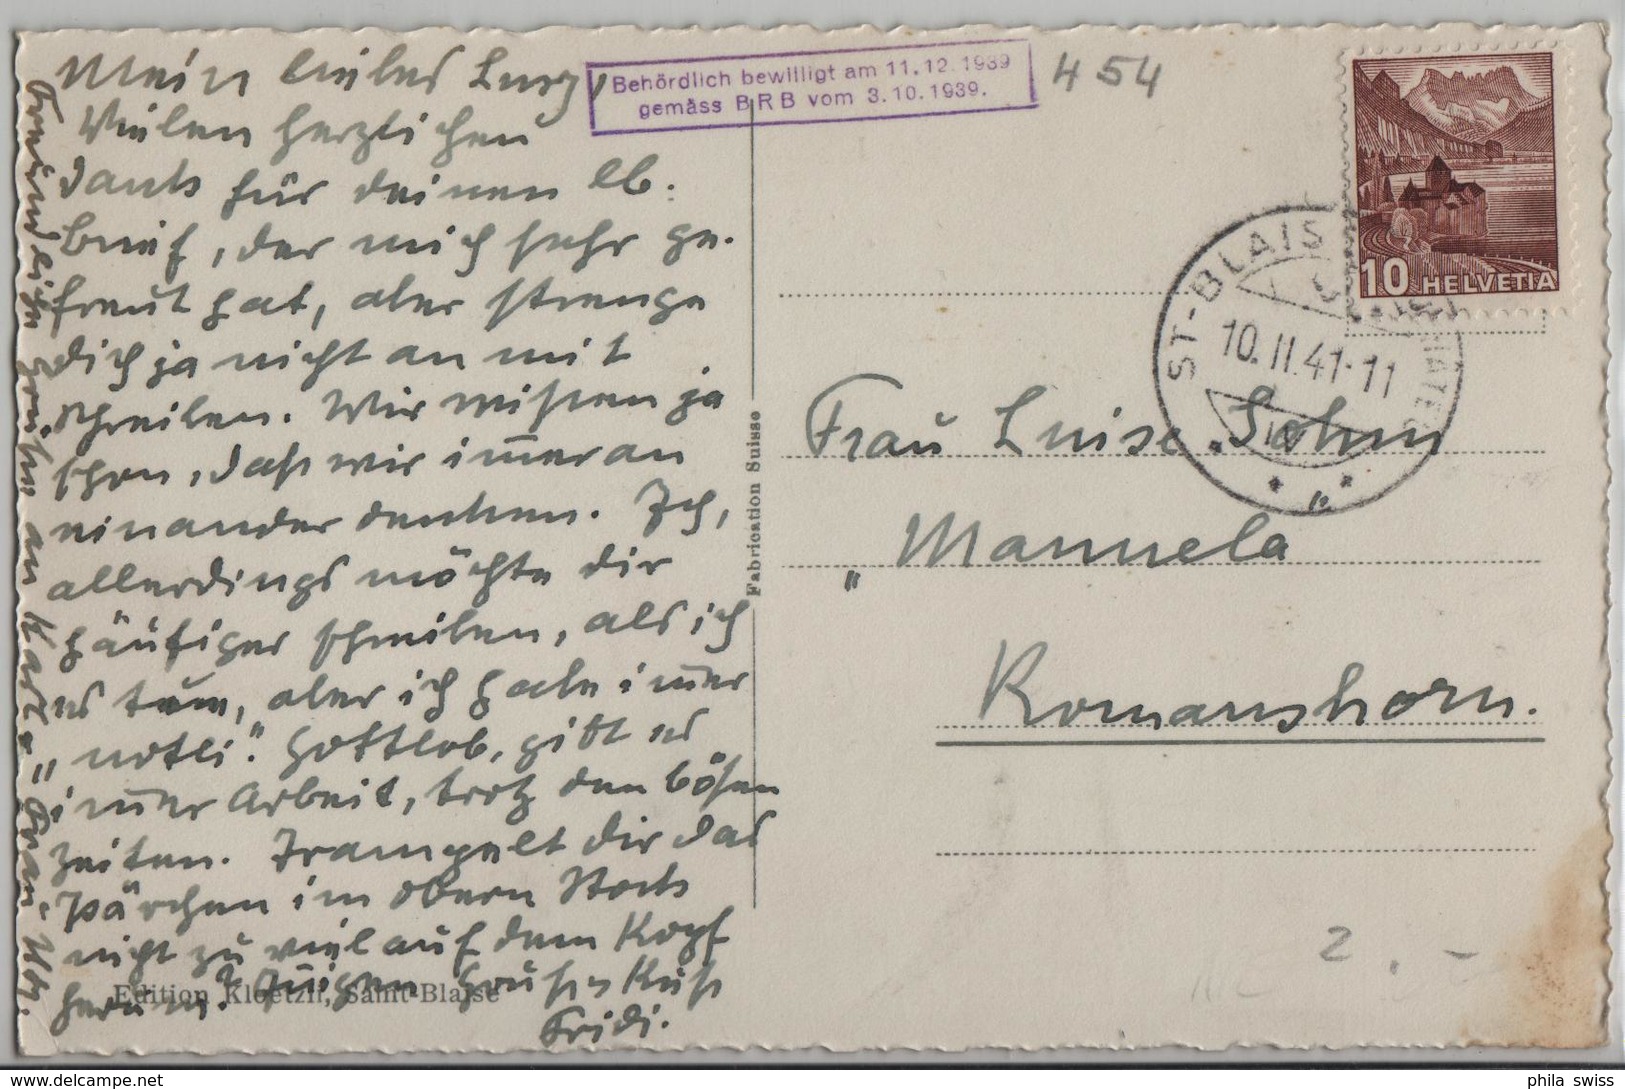 Mein liebes Lusy,
Vielen herzlichen
Dank für deinen lb.
Brief, der mich sehr ge-
freut hat, aber strenge
dich ja nicht an mit
Schreiben. Wir wissen ja
schon, dass wir immer an
einander denken. Ich,
allerdings möchte dir
häufiger schreiben, als ich
es tue, aber ich habe immer
"notli". Gottlob, gibt es
immer Arbeit, trotz den bösen
Zeiten. Trampelt dir das
Pärchen im obern Stock
nicht zu viel auf dem Kopf
herum? Innigen Gruss u Kuss
Fridi.
Freundliche Grüsse an
Behördlich bewilligt am 11.12.1939
gemäss BRB vom 3.10.1939.
454
10 HELVETIA
ST-BLAISE
10.II.41-11
Fabrication Suisse
Frau Luise Sohm
"Manuela"
Romanshorn.
Edition Kloetzli, Saint-Blaise
2.-
phila swiss
www.delcampe.net